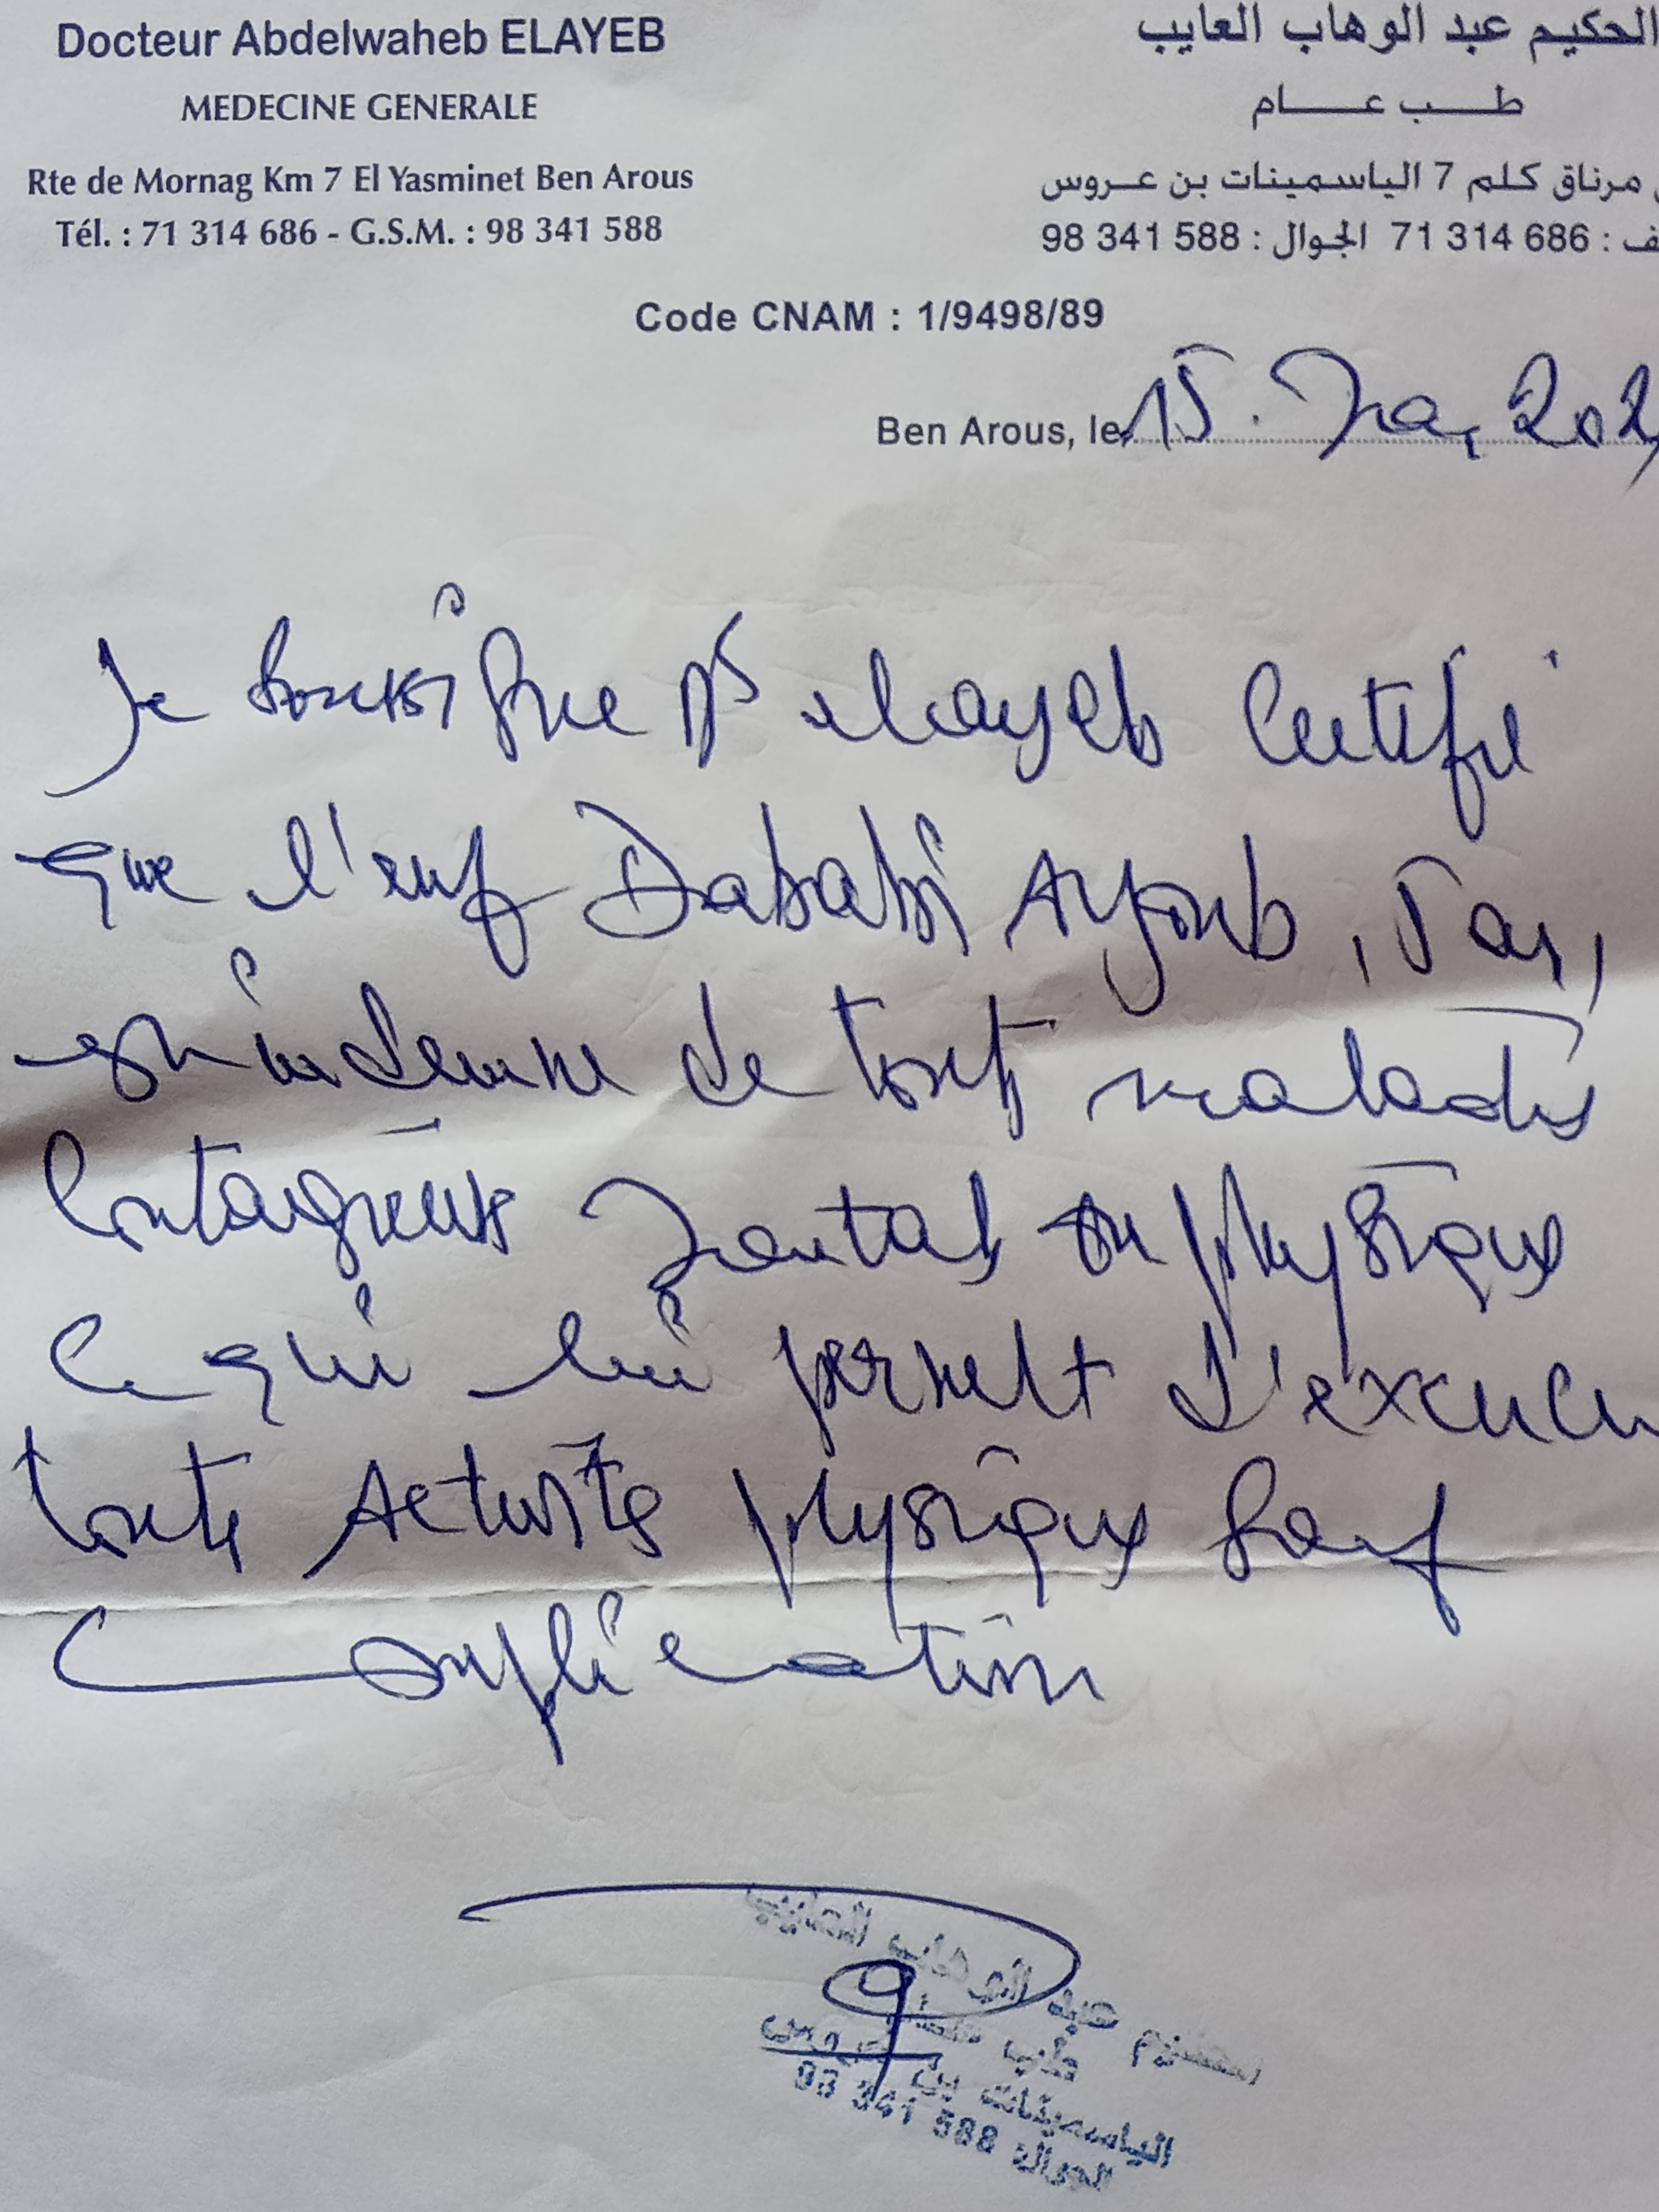 Docteur Abdelwaheb ELAYEB
MEDECINE GENERALE
Rte de Mornag Km 7 El Yasminet Ben Arous
Tél. : 71 314 686 - G.S.M. : 98 341 588
الحكيم عبد الوهاب العايب
طب عام
مرناق كلم 7 الياسمينات بن عروس
ف : 71 314 686 الجوال : 98 341 588
Code CNAM : 1/9498/89
Ben Arous, le 15. 202
Je soussigne Dr elayeb certifie
que l'enf Dababi Ayoub, 5 ans,
est indemne de toute maladie
contagieuse mentale ou physique
ce qui lui permett d'exercer
toute activite physique sauf
complication
عبد الوهاب العايب
طب عام
الياسمينات بن عروس
الجوال 98 341 588